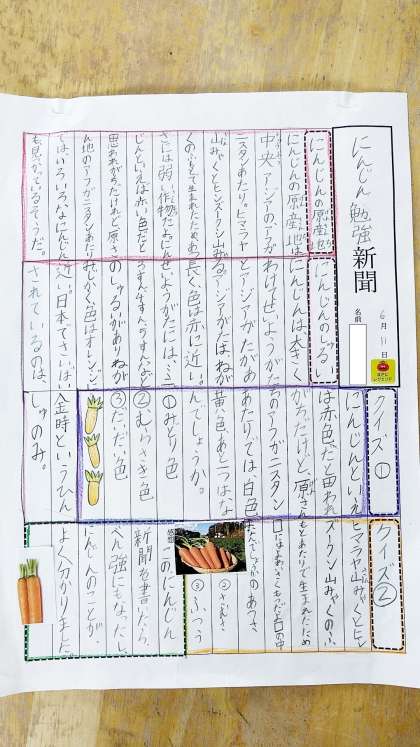 にんじん勉強新聞
6月11日
名前
にんじんの原産地
にんじんの原産地は
中央アジアのアフガ
ニスタンあたり。ヒマラヤ
山みゃくとヒンズークシ山みゃ
くのふもとで生まれたため、あつ
さには弱い作物だよ。にん
じんといえば赤い色だと
思われがちだけれど、原さ
ん地のアフガニスタンあたり
ではいろいろなにんじん
も見かているそうだ。
にんじんのしゅるい
にんじんは、大きく
わけてせいようがた
とアジアがたがあ
る。アジアがたはねが
長く、色は赤に近い。
せいようがたには、ミニ
のしゅるいがあり、ねが
みじかく、色はオレンジに
近い。日本でさいばい
されているのは
金時というひん
しゅのみ。
クイズ①
にんじんといえ
ば赤色だと思われ
がちだけど、原さん
ちのアフガニスタン
あたりでは、白色、
黄色、あと一つはな
んでしょうか。
①みどり色
②むらさき色
③だいだい色
クイズ②
ヒマラヤ山みゃくとヒン
ズークシ山みゃくのふ
もとあたりで生まれたため
②さむさ
③ふつう
感想
このにんじん
新聞を書いたら、
べん強にもなったし、
にんじんのことが
よく分かりました。